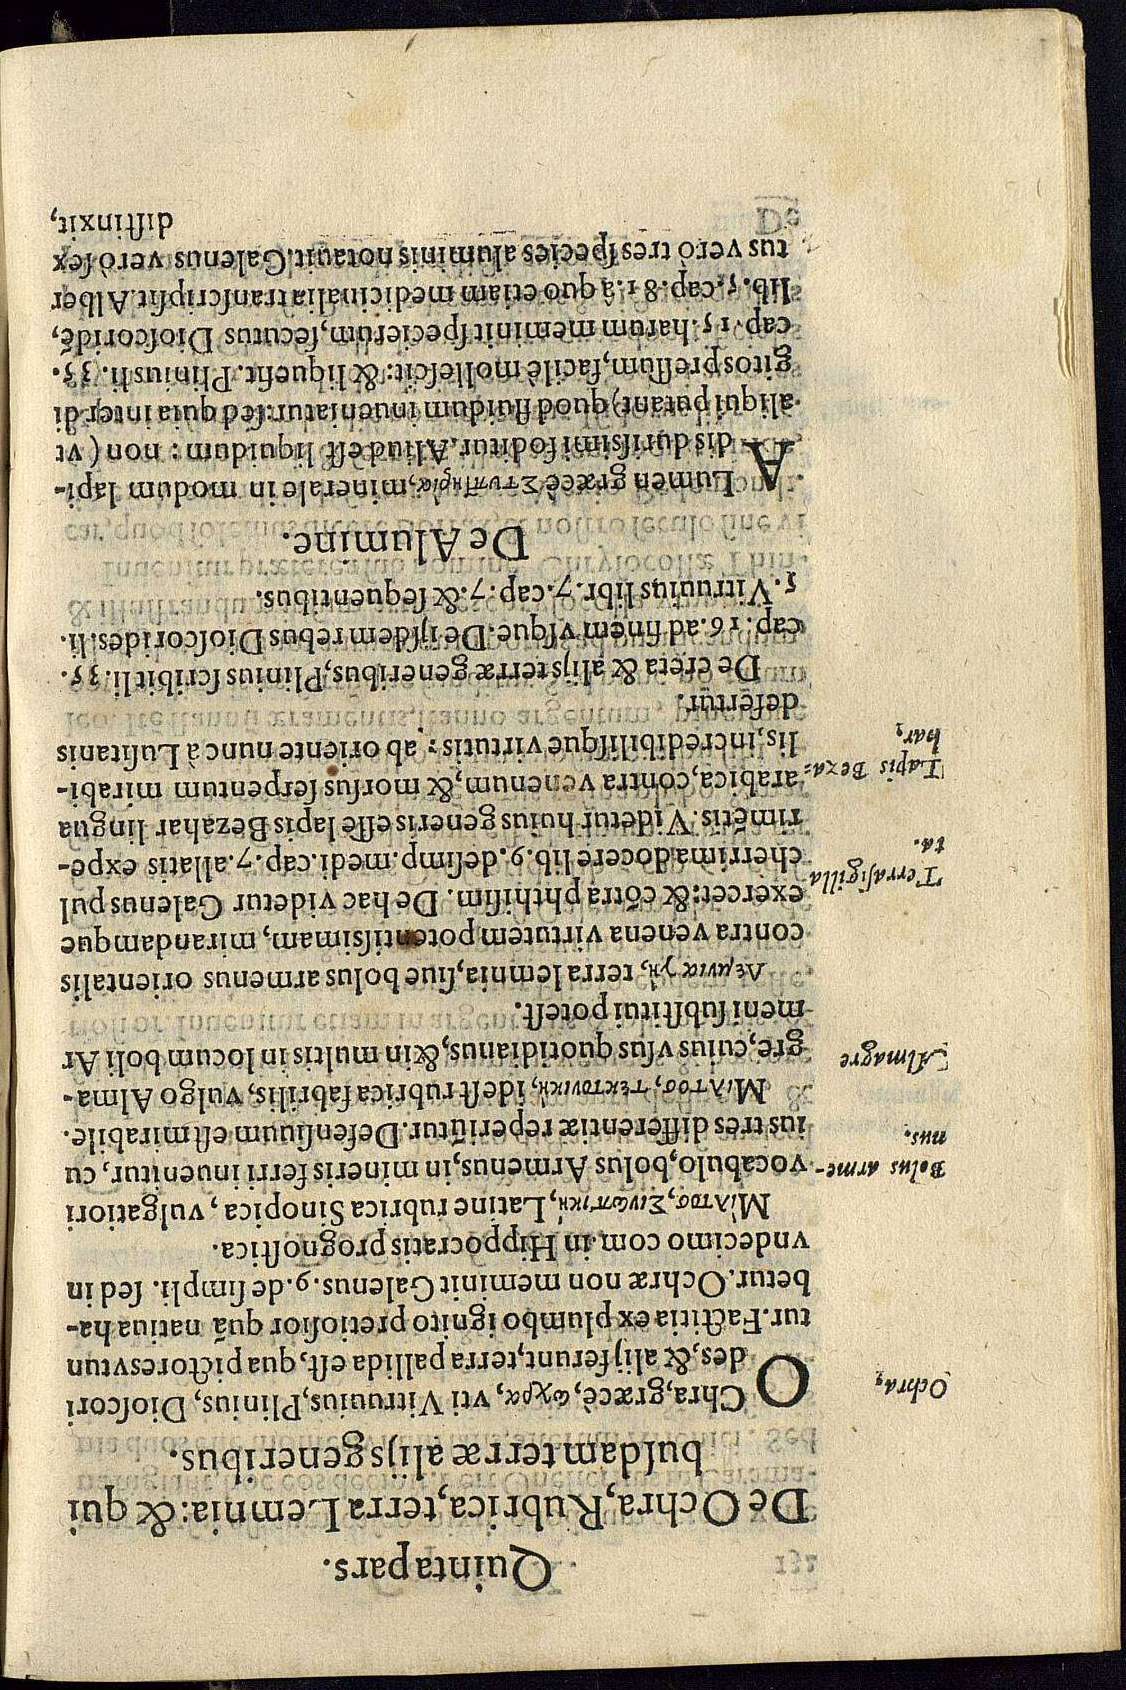 Quinta pars.
De Ochra, Rubrica, terra Lemnia: & qui
busdam terræ alijs generibus.
Ochra,
OChra, græcè, ωχρα, vti Vitruuius, Plinius, Dioscori
des, & alij ferunt, terra pallida est, qua pictores vtun
tur. Factitia ex plumbo ignito pretiosior quã natiua ha-
betur. Ochræ non meminit Galenus .9. de simpli. sed in
vndecimo com. in Hippocratis prognostica.
Μίλτοσ, Σινωπικὴ, Latine rubrica Sinopica, vulgatiori
Bolus arme-
nus.
vocabulo, bolus Armenus, in mineris ferri inuenitur, cu
ius tres differentiæ reperiũtur. Defensiuum est mirabile.
Μίλτοσ, τεκτονικὴ, id est rubrica fabrilis, vulgo Alma-
Almagre
gre, cuius vsus quotidianus, & in multis in locum boli Ar
meni substitui potest.
Λεμνια γὴ, terra lemnia, siue bolus armenus orientalis
contra venena virtutem potentissimam, mirandamque
exercet: & cõtra phthisim. De hac videtur Galenus pul
Terra sigilla
ta.
cherrima docere lib. 9. de simp. medi. cap. 7. allatis expe-
rimẽtis. Videtur huius generis esse lapis Bezahar lingua
Lapis Beza=
har,
arabica, contra venenum, & morsus serpentum mirabi-
lis, incredibilisque virtutis: ab oriente nunc à Lusitanis
defertur.
De creta & alijs terræ generibus, Plinius scribit li. 35.
cap. 16. ad finem vsque. De ijsdem rebus Dioscorides. li.
5. Vitruuius libr. 7. cap. 7. & sequentibus.
De Alumine.
ALumen græcè Στυπτηρία, minerale in modum lapi-
dis durissimi foditur. Aliud est liquidum: non (vt
aliqui putant) quod fluidum inueniatur: sed quia inter di
gitos pressum, facilè mollescit: & liquefit. Plinius li. 35.
cap. 15. harum meminit specierum, secutus Dioscoridẽ,
lib. 5. cap. 81. à quo etiam medicinalia transcripsit. Alber
tus verò tres species aluminis notauit. Galenus verò sex
distinxit,